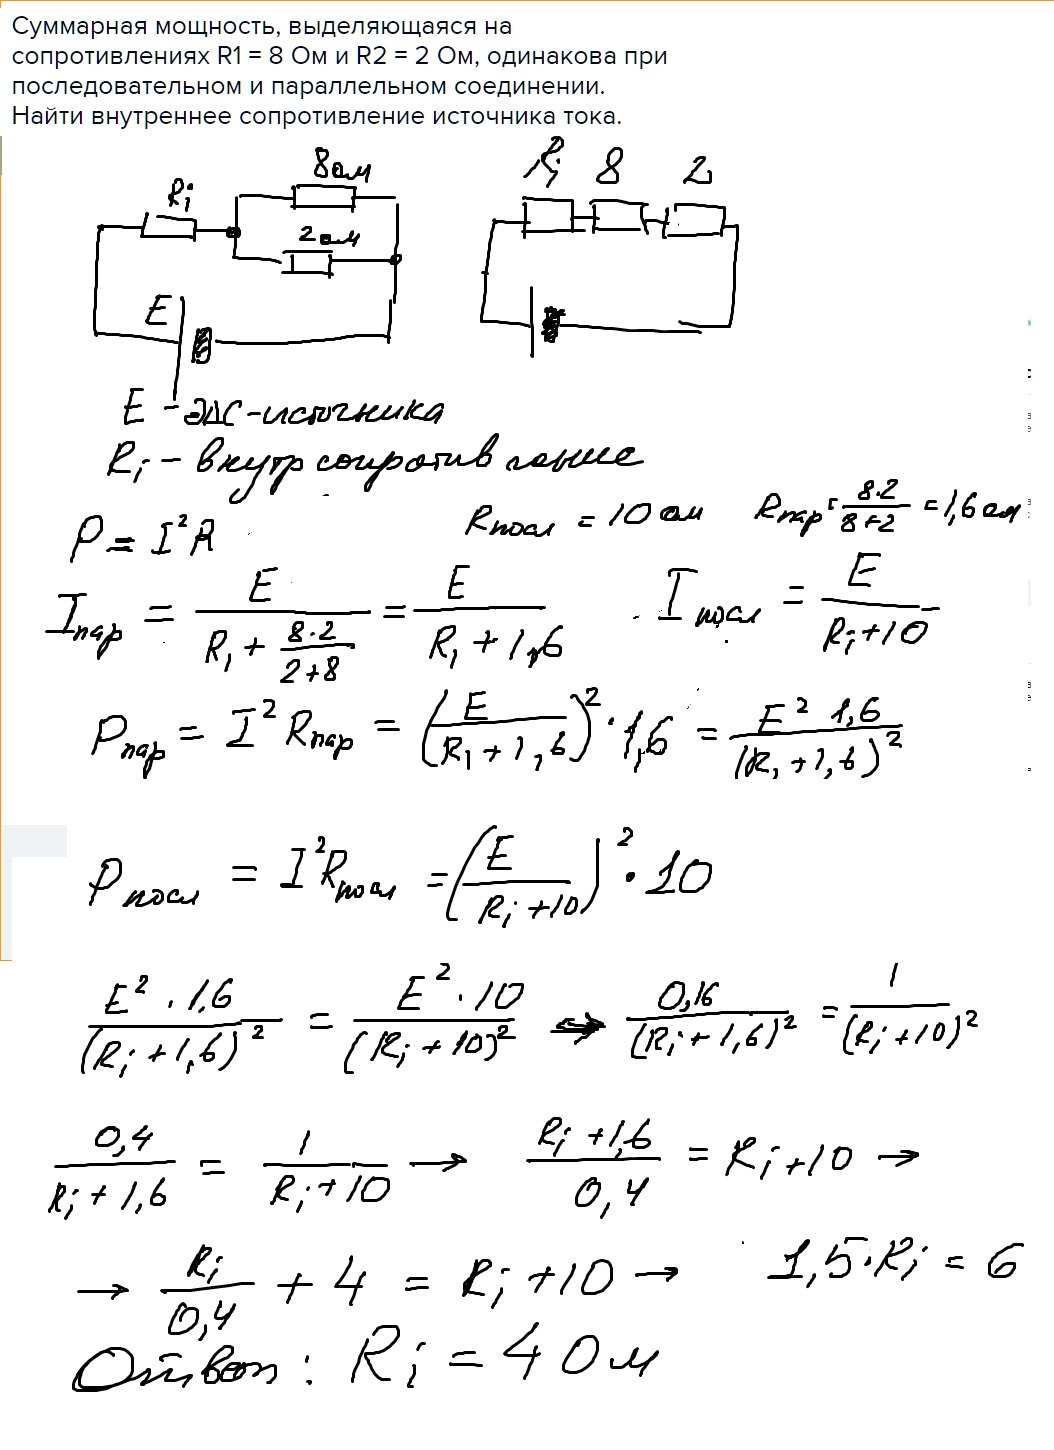 Суммарная мощность, выделяющаяся на
сопротивлениях R1 = 8 Ом и R2 = 2 Ом, одинакова при
последовательном и параллельном соединении.
Найти внутреннее сопротивление источника тока.
Ri 8ом 2ом E
Ri 8 2
E - ЭДС-источника
Ri - внутр сопротивление
P = I²R Rпосл = 10 ом Rпар = 8·2/(8+2) = 1,6 ом
Iпар = E/(R1 + 8·2/(2+8)) = E/(R1 + 1,6) Iпосл = E/(Ri+10)
Pпар = I² Rпар = (E/(R1+1,6))² · 1,6 = E² 1,6/(R1+1,6)²
Pпосл = I²Rпосл = (E/(Ri+10))² · 10
E² · 1,6/(Ri+1,6)² = E² · 10/(Ri+10)² → 0,16/(Ri+1,6)² = 1/(Ri+10)²
0,4/(Ri+1,6) = 1/(Ri+10) → (Ri+1,6)/0,4 = Ri+10 →
→ Ri/0,4 + 4 = Ri+10 → 1,5·Ri = 6
Ответ: Ri = 4 Ом